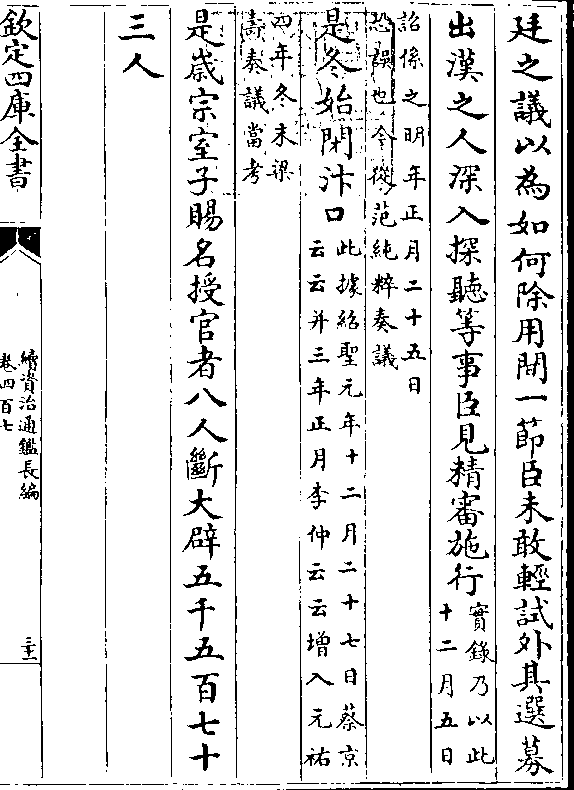 廷之議以為如何除用間一節臣未敢輕試外其選募
出漢之人深入探聽等事臣見精審施行
實錄乃以此
十二月五日
詔係之明年正月二十五日
恐誤也今從范純粹奏議
是冬始閉汴口
此據紹聖元年十二月二十七日蔡京
云云并三年正月李仲云云増入元祐
四年冬末梁
燾奏議當考
是歳宗室子賜名授官者八人斷大辟五千五百七十
三人
欽定四庫全書
續資治通鑑長編
卷四百七
三十二